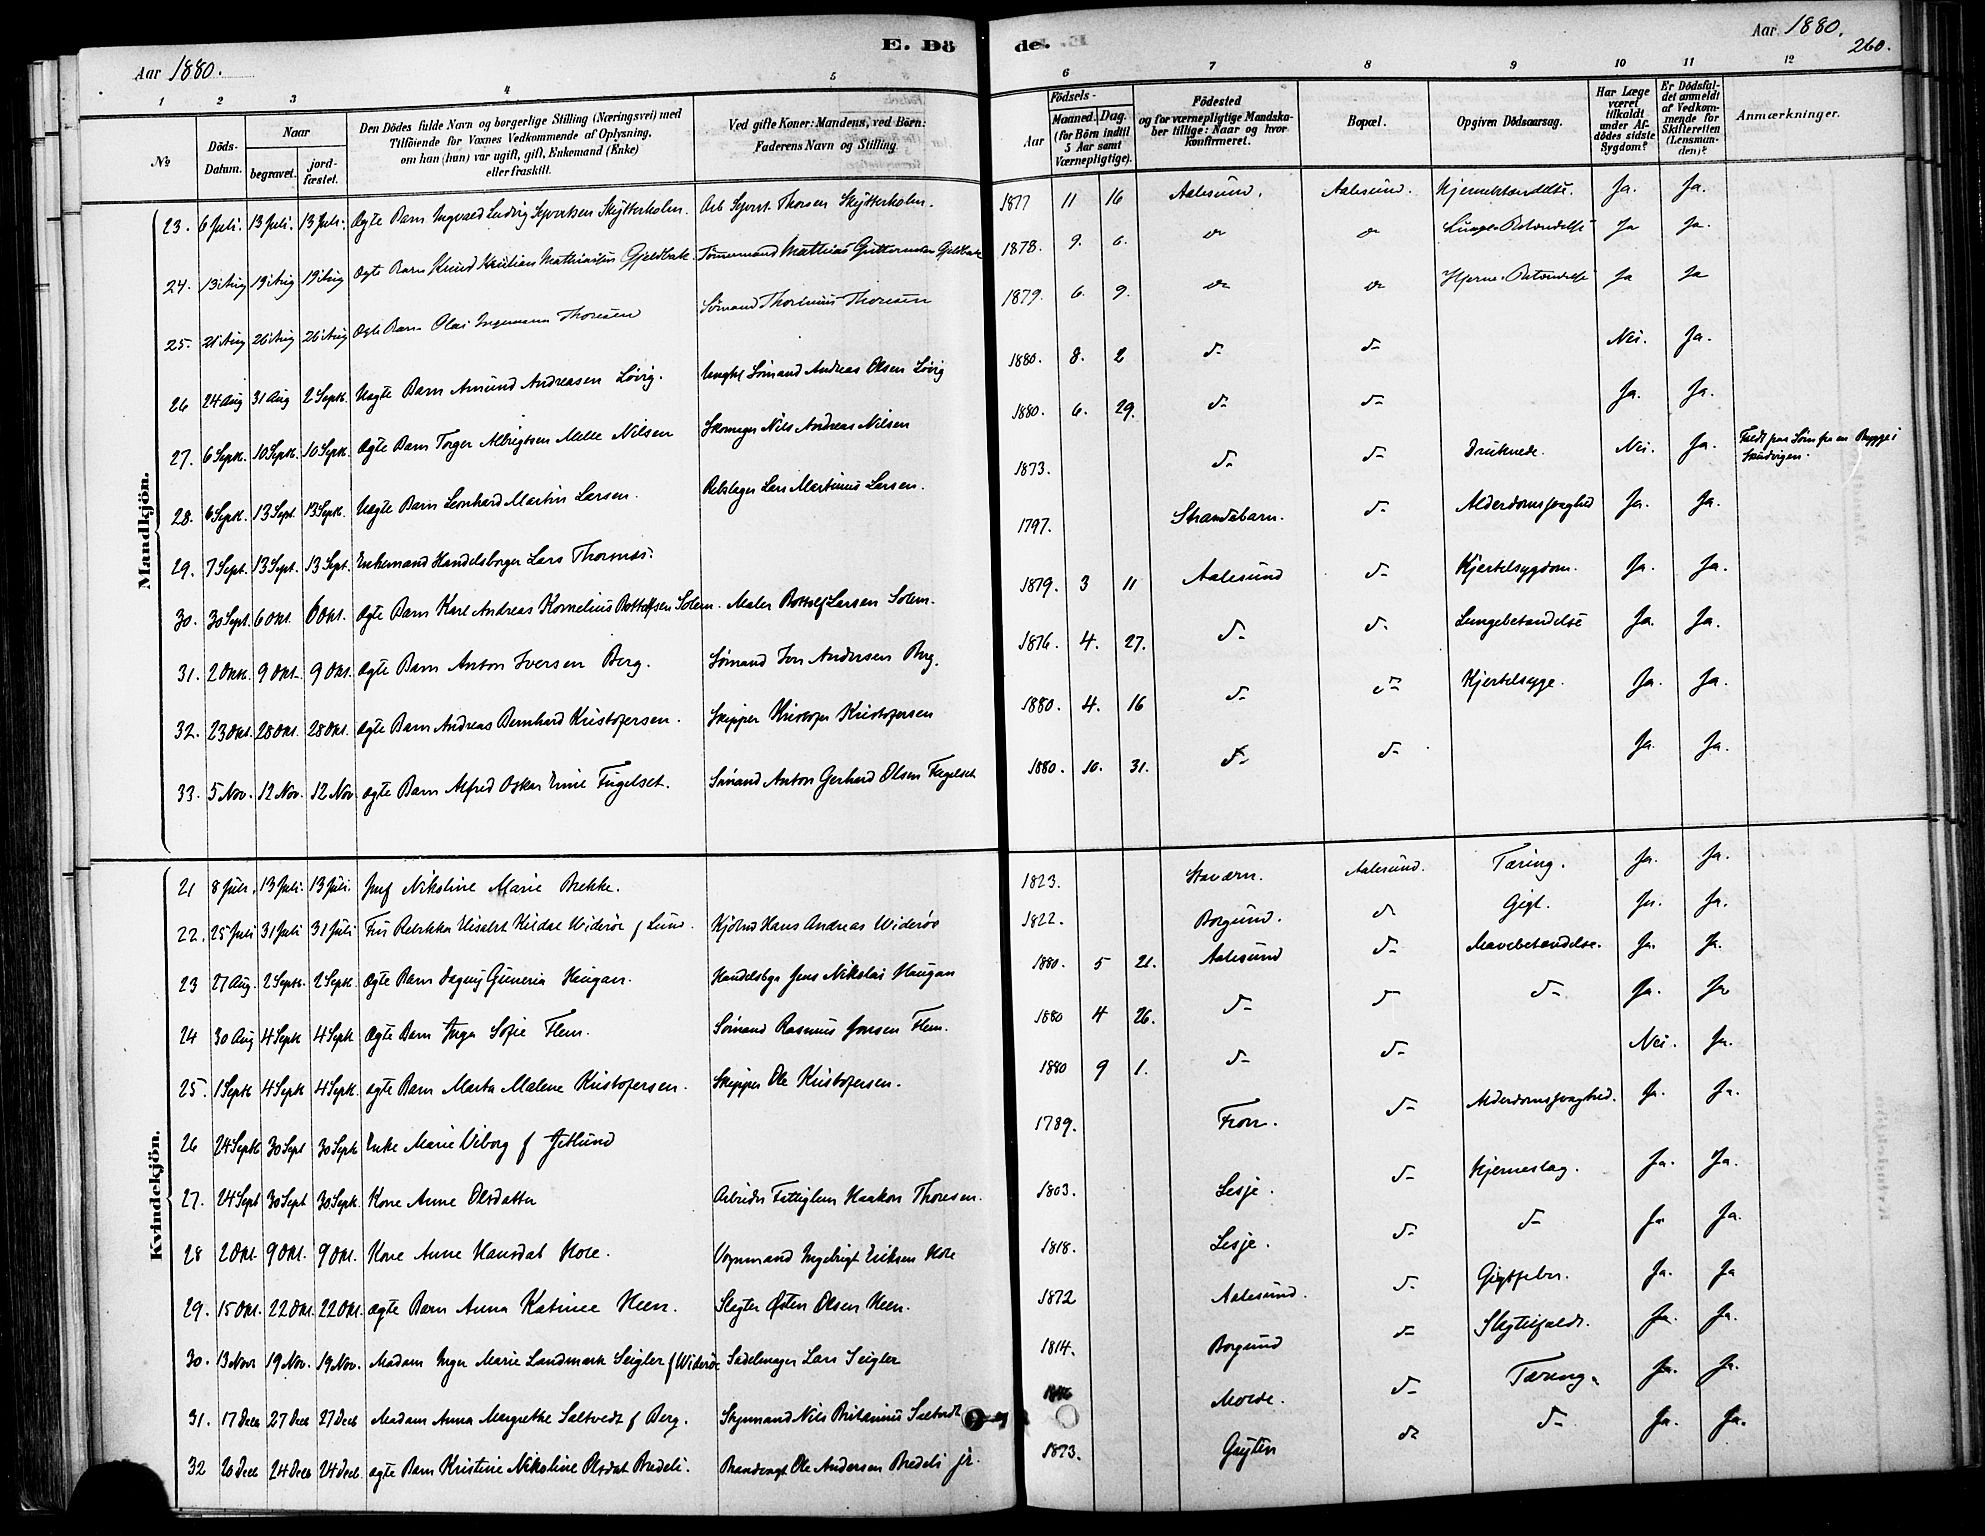 E. Dö de.
Aar 1880.
Aar 1880.
260.
1 2 3 4 5 6 7 8 9 10 11 12
No
Döds-Datum.
Naar
begravet.
jord-fæstet.
Den Dödes fulde Navn og borgerlige Stilling (Næringsvei) med
Tilföiende for Voxnes Vedkommende af Oplysning,
om han (hun) var ugift, gift, Enkemand (Enke)
eller fraskilt.
Ved gifte Koner: Mandens, ved Börn:
Faderens Navn og Stilling
Födsels-
Aar
Maaned. Dag.
(for Börn indtil
5 Aar samt
Værnepligtige).
Födested
og for værnepligtige Mandska-
ber tillige: Naar og hvor
konfirmeret.
Bopæl.
Opgiven Dödsaarsag.
Har Læge
været
tilkaldt
under Af-
dödes sidste
Sygdom?
Er Dödsfal-
det anmeldt
af Vedkom-
mende for
Skifteretten
(Lensman-
den)?
Anmærkninger.
Mandkjön.
23. 6 Juli. 13 Juli. 13 Juli. Ægte Barn Ingvald Ludvig Syvertsen Skytterholm. Arb Syvert Thorsen Skytterholm. 1877 11 16 Aalesund. Aalesund. Hjernebetændelse. Ja. Ja.
24. 13 Aug 19 Aug 19 Aug Ægte Barn Knud Kristian Mathiasen Gjeldbak Tømmermand Mathias Guttormsen Gjeldbak 1878. 9. 6. do do Lunge-Betændelse Ja Ja.
25. 21 Aug 26 Aug 26 Aug Ægte Barn Olai Ingemann Thoresen Sømand Thorinus Thoresen 1879. 6. 9. do do Hjerne-Betændelse Ja Ja
26 24 Aug 31 Aug 2 Septb. Uægte Barn Amund Andreasen Løvig. Ungkl Sømand Andreas Olsen Løvig 1880. 8. 2 do do Nei. Ja.
27. 6 Septb. 10 Septb. 10 Septb. Ægte Barn Torger Albrigtsen Melle Nilsen Skomager Nils Andreas Nilsen 1880. 6. 29. do do Ja. Ja.
28. 6 Septb. 13 Sept. 13 Septb. Uægte Barn Leonhard Martin Larsen. Rebslager Lars Martinus Larsen. 1873. do do Druknede. Nei. Ja. Faldt paa Søen fra en Brygge i
29. 7 Sept. 13 Sept. 13 Sept. Enkemand Handelsborger Lars Thormas. 1797. Strandebarn. do Alderdomssvaghed Ja. Ja.
30. 30 Sept. 6 Okt. 6 Okt. Ægte Barn Karl Andreas Kornelius Bottolfsen Solem. Maler Bottolf Larsen Solem. 1879. 3 11 Aalesund do Kjertelsygdom. Ja. Ja.
31. 2 Okt. 9 Okt. 9 Okt. Ægte Barn Anton Iversen Berg. Sømand Iver Andersen Berg. 1876. 4. 27. do do Lungebetændelse Ja. Ja.
32. 23 Okt. 28 Okt. 28 Okt. Ægte Barn Andreas Bernhard Kristofersen. Skipper Kristofer Kristofersen 1880. 4. 16 do do Kjertelsyge. Ja. Ja.
33. 5 Nov. 12 Nov. 12 Nov Ægte Barn Alfred Oskar Fugelset. Sømand Anton Gerhard Olsen Fugelset 1880. 10. 31. do do Ja. Ja.
Kvindekjön.
21 8 Juli. 13 Juli. 13 Juli. Jmf Nikoline Marie Brekke. 1823. Stavern. Aalesund. Tæring. Ja. Ja.
22. 25 Juli 31 Juli 31 Juli Fru Rebekka Kildal Widerøe f Lund. Kjøbmd Hans Andreas Widerøe 1822. Borgund. do Gigt. Ja. Ja.
23 27 Aug. 2 Septb. 2 Septb. Ægte Barn Dagny Guneria Haugan. Handelsbgr Jens Nikolai Haugan 1880. 5 21. Aalesund do Mavebetændelse. Ja. Ja.
24 30 Aug 4 Septb 4 Septb. Ægte Barn Inga Sofie Flem. Sømand Rasmus Jonsen Flem. 1880 4 26. do do do Ja. Ja
25. 1 Septb 4 Septb 4 Septb. Ægte Barn Marta Malene Kristofersen. Skipper Ole Kristofersen. 1880 9 1. do do Nei. Ja.
26 24 Septb 30 Sept 30 Septb Enke Marie Viborg f Jetlund 1789. Fron. do Alderdomssvaghed. Ja. Ja.
27. 24 Sept 30 Sept 30 Septb. Kone Anne Olsdatter Arbeider Fattiglem Haakon Thoresen. 1803. Lesje. do Hjerneslag. Ja. Ja.
28 2 Okt. 9 Okt. 9 Okt. Kone Anne Hansdat Hole. Vognmand Ingebrigt Eriksen Hole 1818. Lesje. do do Ja Ja.
29. 15 Okt. 22 Okt. 22 Okt. Ægte Barn Anna Katinee Heen. Slagter Østen Olsen Heen. 1872 Aalesund. do Gigtfeber. Ja. Ja
30. 13 Novr 19 Nov. 19 Nov. Madam Inger Marie Landmark Seigler f Widerøe Sadelmager Lars Seigler 1814. Borgund do Ja. Ja.
31. 17 Decb 27 Decb 27 Decb Madam Anna Margrethe Saltvedt f Berg. Nils Britanius Saltvedt Molde. do Tæring. Ja. Ja.
32 20 Decb 24 Decb 24 Decb. Ægte Barn Kristine Nikoline Olsdat Bredeli. Brandvagt Ole Andersen Bredeli jr. 1873. Grytten do do Ja. Ja.